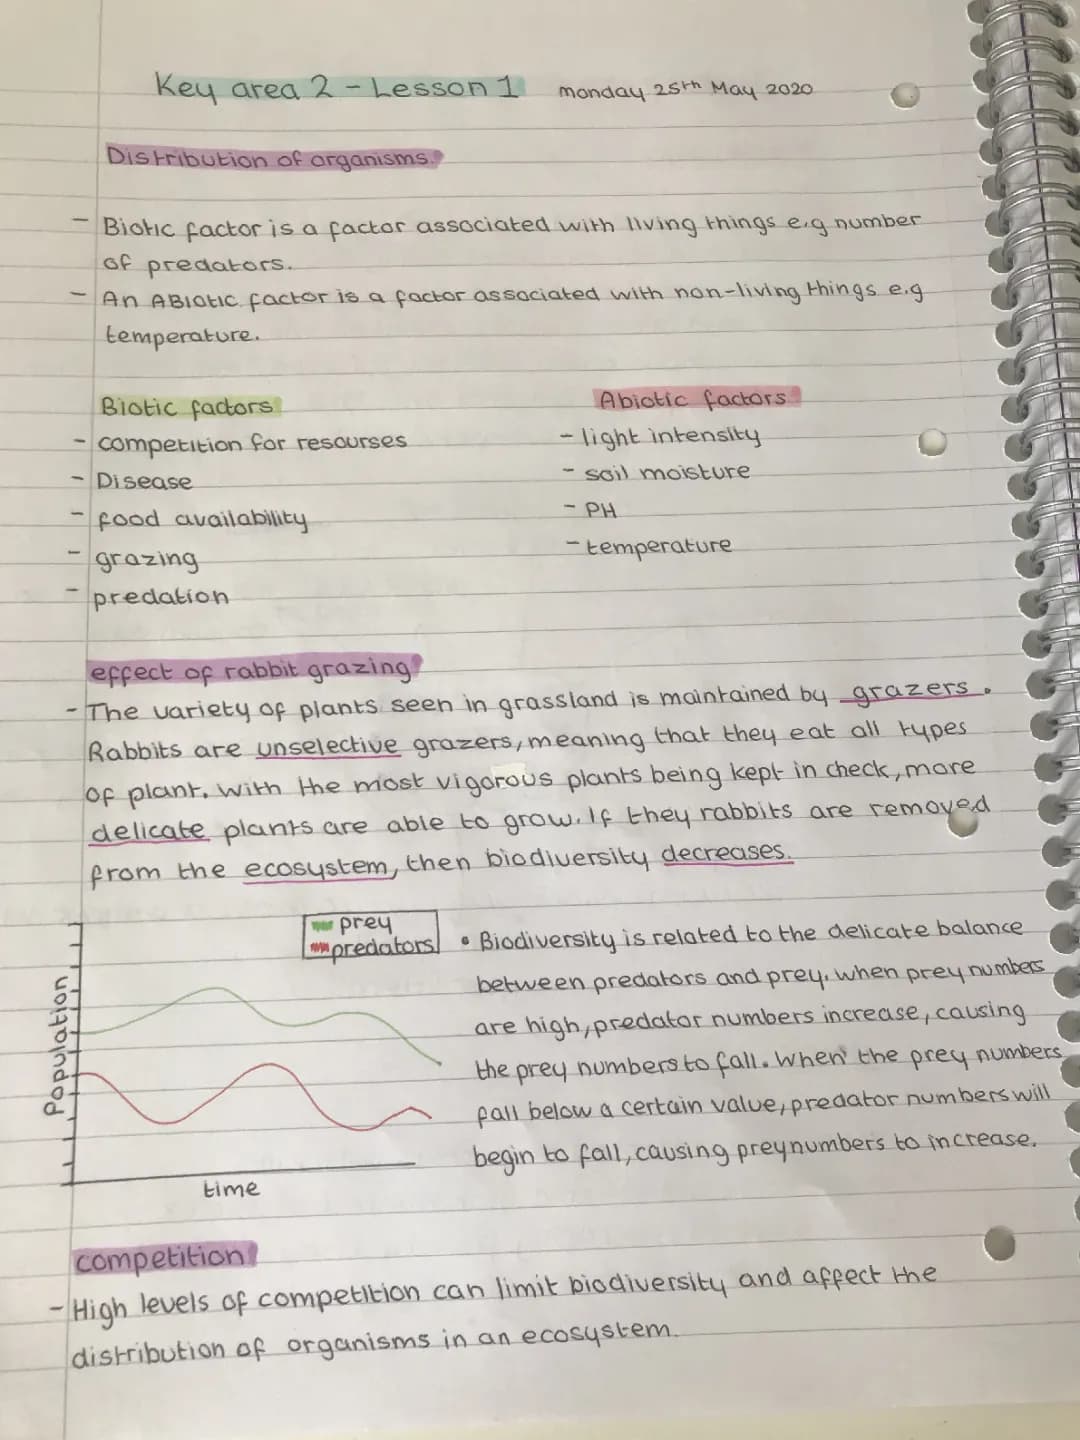 Key area 2 - Lesson 1 monday 25th May 2020
Distribution of organisms
- Biotic factor is a factor associated with living things e.g number
of predators.
- An ABIOTIC factor is a factor associated with non-living things e.g
temperature.
Biotic factors
- competition for resourses
- Disease
- food availability
- grazing
- predation
Abiotic factors
- light intensity
- soil moisture
- PH
- temperature
effect of rabbit grazing
- The variety of plants seen in grassland is maintained by grazers.
Rabbits are unselective grazers, meaning that they eat all types
of plant. With the most vigorous plants being kept in check, more
delicate plants are able to grow. If they rabbits are removed
from the ecosystem, then biodiversity decreases.
prey
predators
Population
time
• Biodiversity is related to the delicate balance
between predators and prey. when prey numbers
are high, predator numbers increase, causing
the prey numbers to fall. When the prey numbers
fall below a certain value, predator numbers will
begin to fall, causing prey numbers to increase.
competition
- High levels of competition can limit biodiversity and affect the
distribution of organisms in an ecosystem.